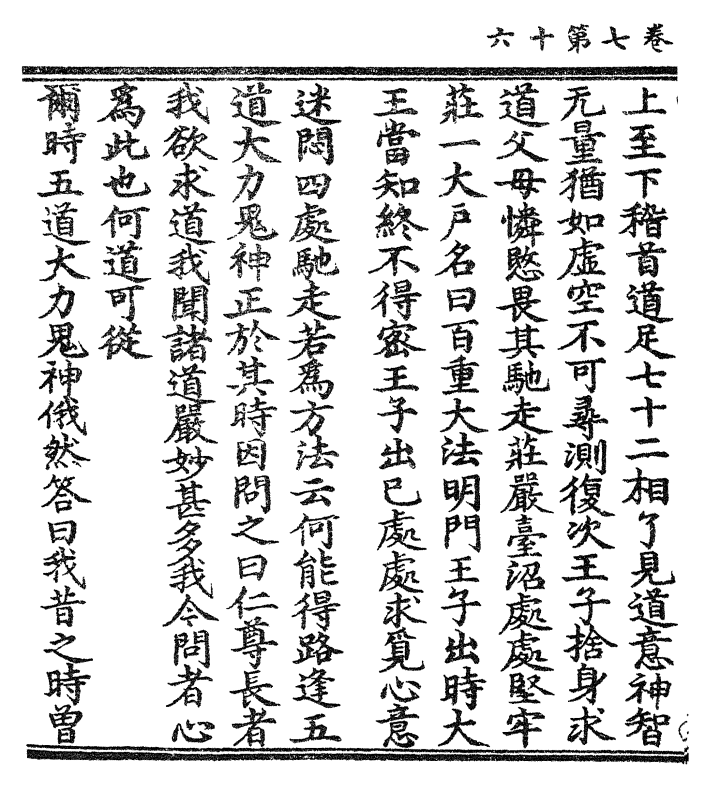 卷七第十六
上至下稽首道足七十二相了見道意神智
无量猶如虛空不可尋測復次王子捨身求
道父母憐愍畏其馳走莊嚴臺沼處處堅牢
莊一大戶名曰百重大法明門王子出時大
王當知終不得密王子出已處處求覓心意
迷悶四處馳走若爲方法云何能得路逢五
道大力鬼神正於其時因問之曰仁尊長者
我欲求道我聞諸道嚴妙甚多我今問者心
爲此也何道可從
爾時五道大力鬼神俄然答曰我昔之時曾